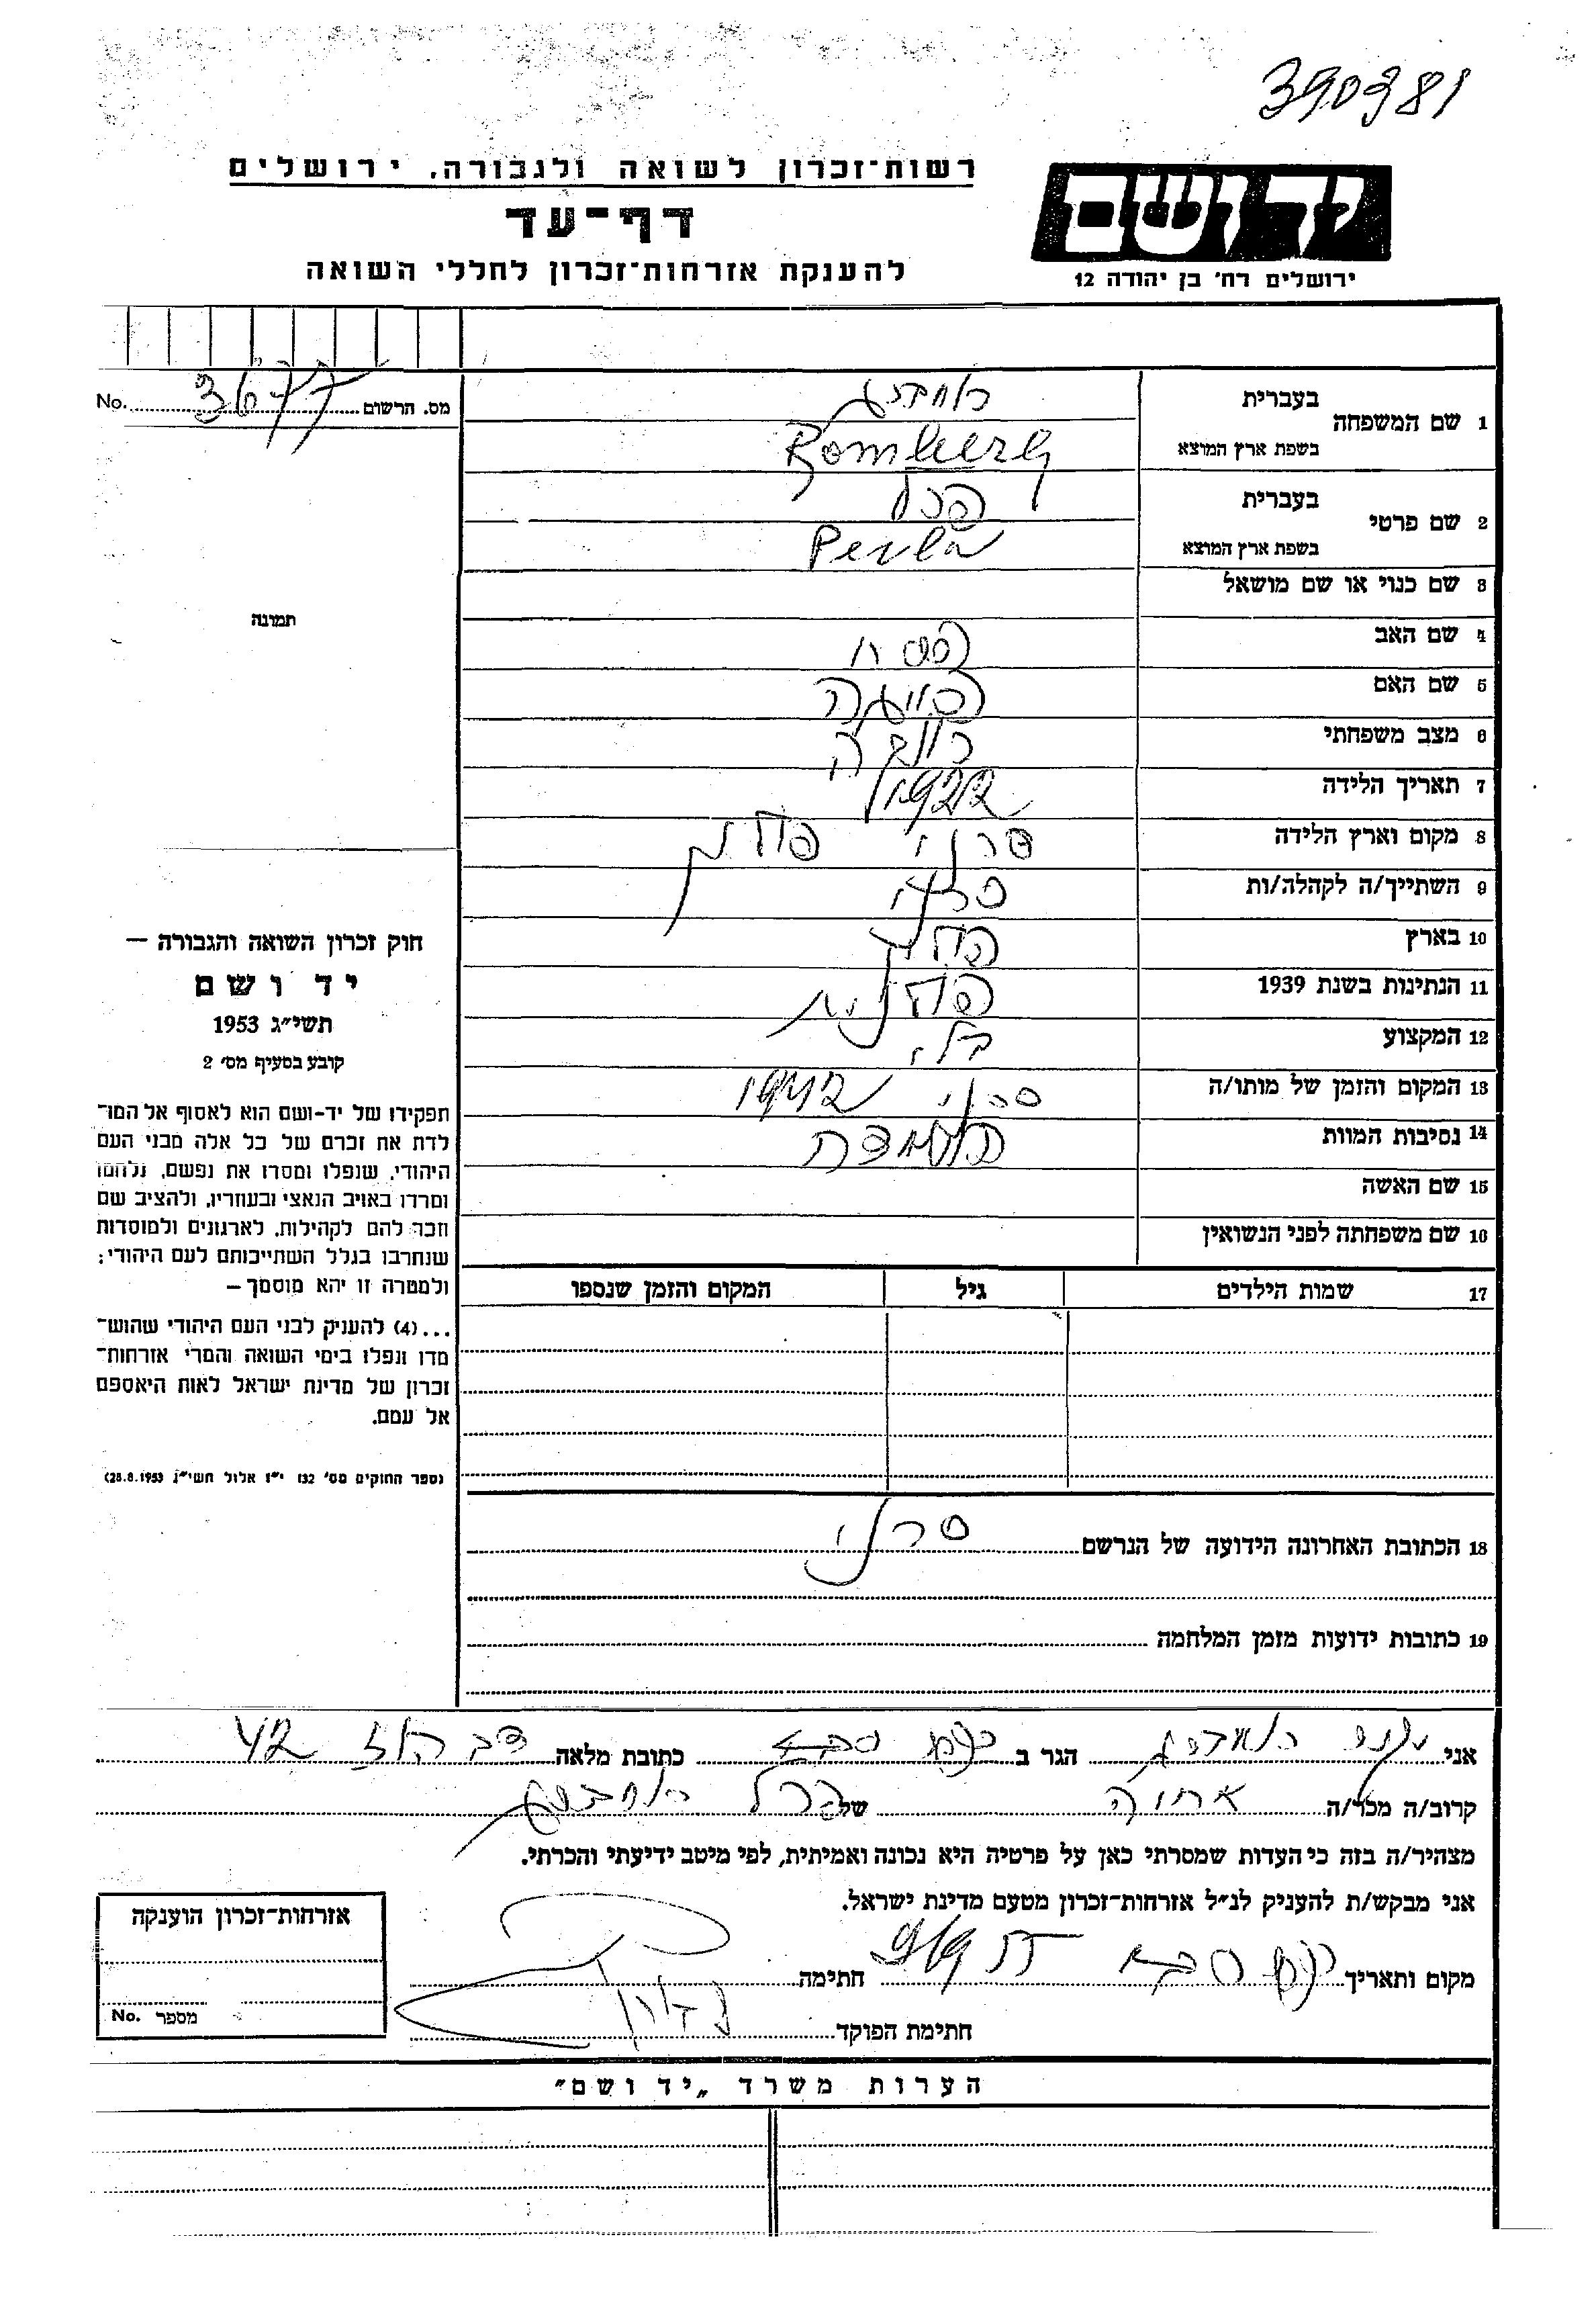 390381
רשות־זכרון לשואה ולגבורה, ירושלים
יד ושם
דף־עד
להענקת אזרחות־זכרון לחללי השואה
ירושלים רח׳ בן יהודה 12
מס. הרשום 3677 No.
1 שם המשפחה בעברית רומברג
בשפת ארץ המוצא Romberg
2 שם פרטי בעברית פרל
בשפת ארץ המוצא Perla
3 שם כנוי או שם מושאל
תמונה
4 שם האב פסח
5 שם האם
6 מצב משפחתי רווקה
7 תאריך הלידה 1922
8 מקום וארץ הלידה סרני פולין
9 השתייך/ה לקהלה/ות
10 בארץ פולין
11 הנתינות בשנת 1939 פולנית
12 המקצוע בלי
13 המקום והזמן של מותו/ה 1942
14 נסיבות המוות הושמדה
15 שם האשה
16 שם משפחתה לפני הנשואין
17 שמות הילדים גיל המקום והזמן שנספו
חוק זכרון השואה והגבורה —
יד ושם
תשי״ג 1953
קובע בסעיף מס׳ 2
תפקידו של יד-ושם הוא לאסוף אל המו־
לדת את זכרם של כל אלה מבני העם
היהודי, שנפלו ומסרו את נפשם, נלחמו
ומרדו באויב הנאצי ובעוזריו, ולהציב שם
וזכר להם לקהילות, לארגונים ולמוסדות
שנחרבו בגלל השתייכותם לעם היהודי;
ולמטרה זו יהא מוסמך —
...(4) להעניק לבני העם היהודי שהוש־
מדו ונפלו בימי השואה והמרי אזרחות־
זכרון של מדינת ישראל לאות היאספם
אל עמם.
(ספר החוקים מס׳ 132 י״ז אלול תשי״ג 28.8.1953)
18 הכתובת האחרונה הידועה של הנרשם
19 כתובות ידועות מזמן המלחמה
אני רומברג הגר ב כפר סבא כתובת מלאה דב הוז 42
קרוב/ה מכר/ה אחותה של פרל רומברג
מצהיר/ה בזה כי העדות שמסרתי כאן על פרטיה היא נכונה ואמיתית, לפי מיטב ידיעתי והכרתי.
אני מבקש/ת להעניק לנ״ל אזרחות־זכרון מטעם מדינת ישראל.
מקום ותאריך כפר סבא חתימה
חתימת הפוקד
אזרחות־זכרון הוענקה
מספר No.
הערות משרד „יד ושם״